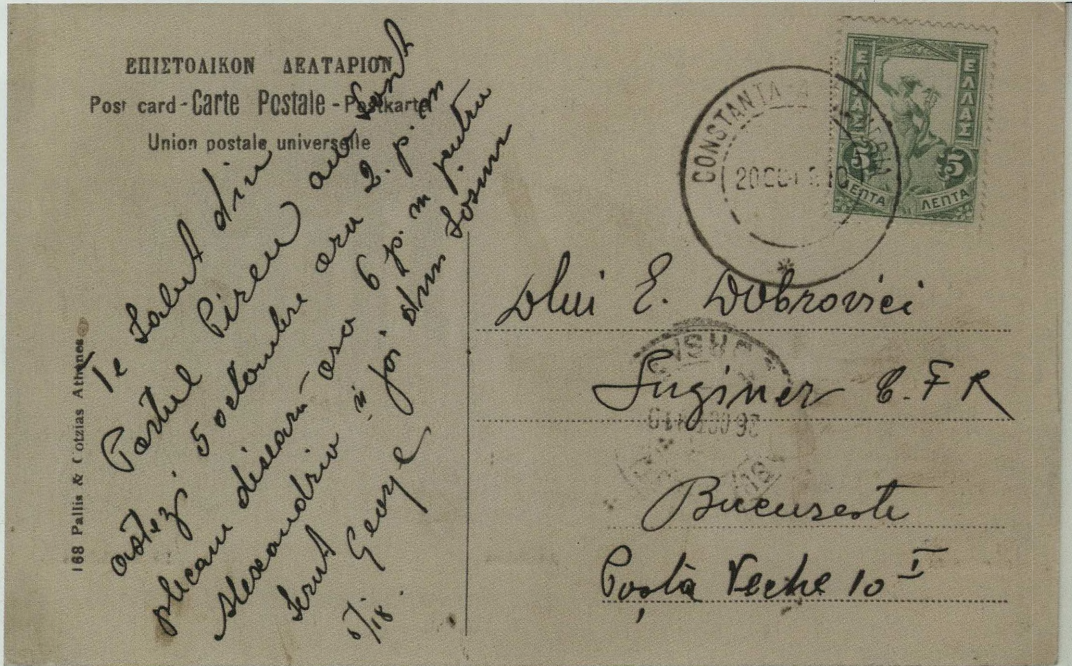 ΕΠΙΣΤΟΛΙΚΟΝ ΔΕΛΤΑΡΙΟΝ
Post card - Carte Postale - Postkarte
Union postale universelle
168 Pallis & Cotzias Athènes
Te salut din
Portul Pireu
astezi 5 octombre ora 2. p. m
plecam diseară ora 6 p. m pentru
Alexandria și joi
George
5/18.
CONSTANTA
ΕΛΛΑΣ
ΕΛΛΑΣ
5 5
ΛΕΠΤΑ ΛΕΠΤΑ
Dlui E. Dobrovici
Inginer C. F R
Bucuresti
Poșta Veche 10 I